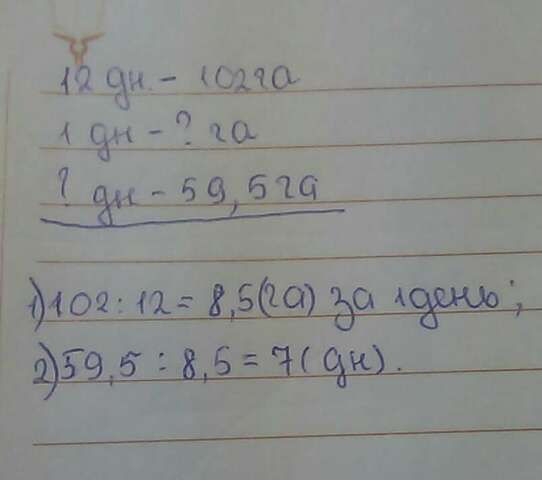 12 дн. - 102га
1 дн - ? га
? дн - 59,5га
1) 102 : 12 = 8,5(га) за 1 день;
2) 59,5 : 8,5 = 7( дн).